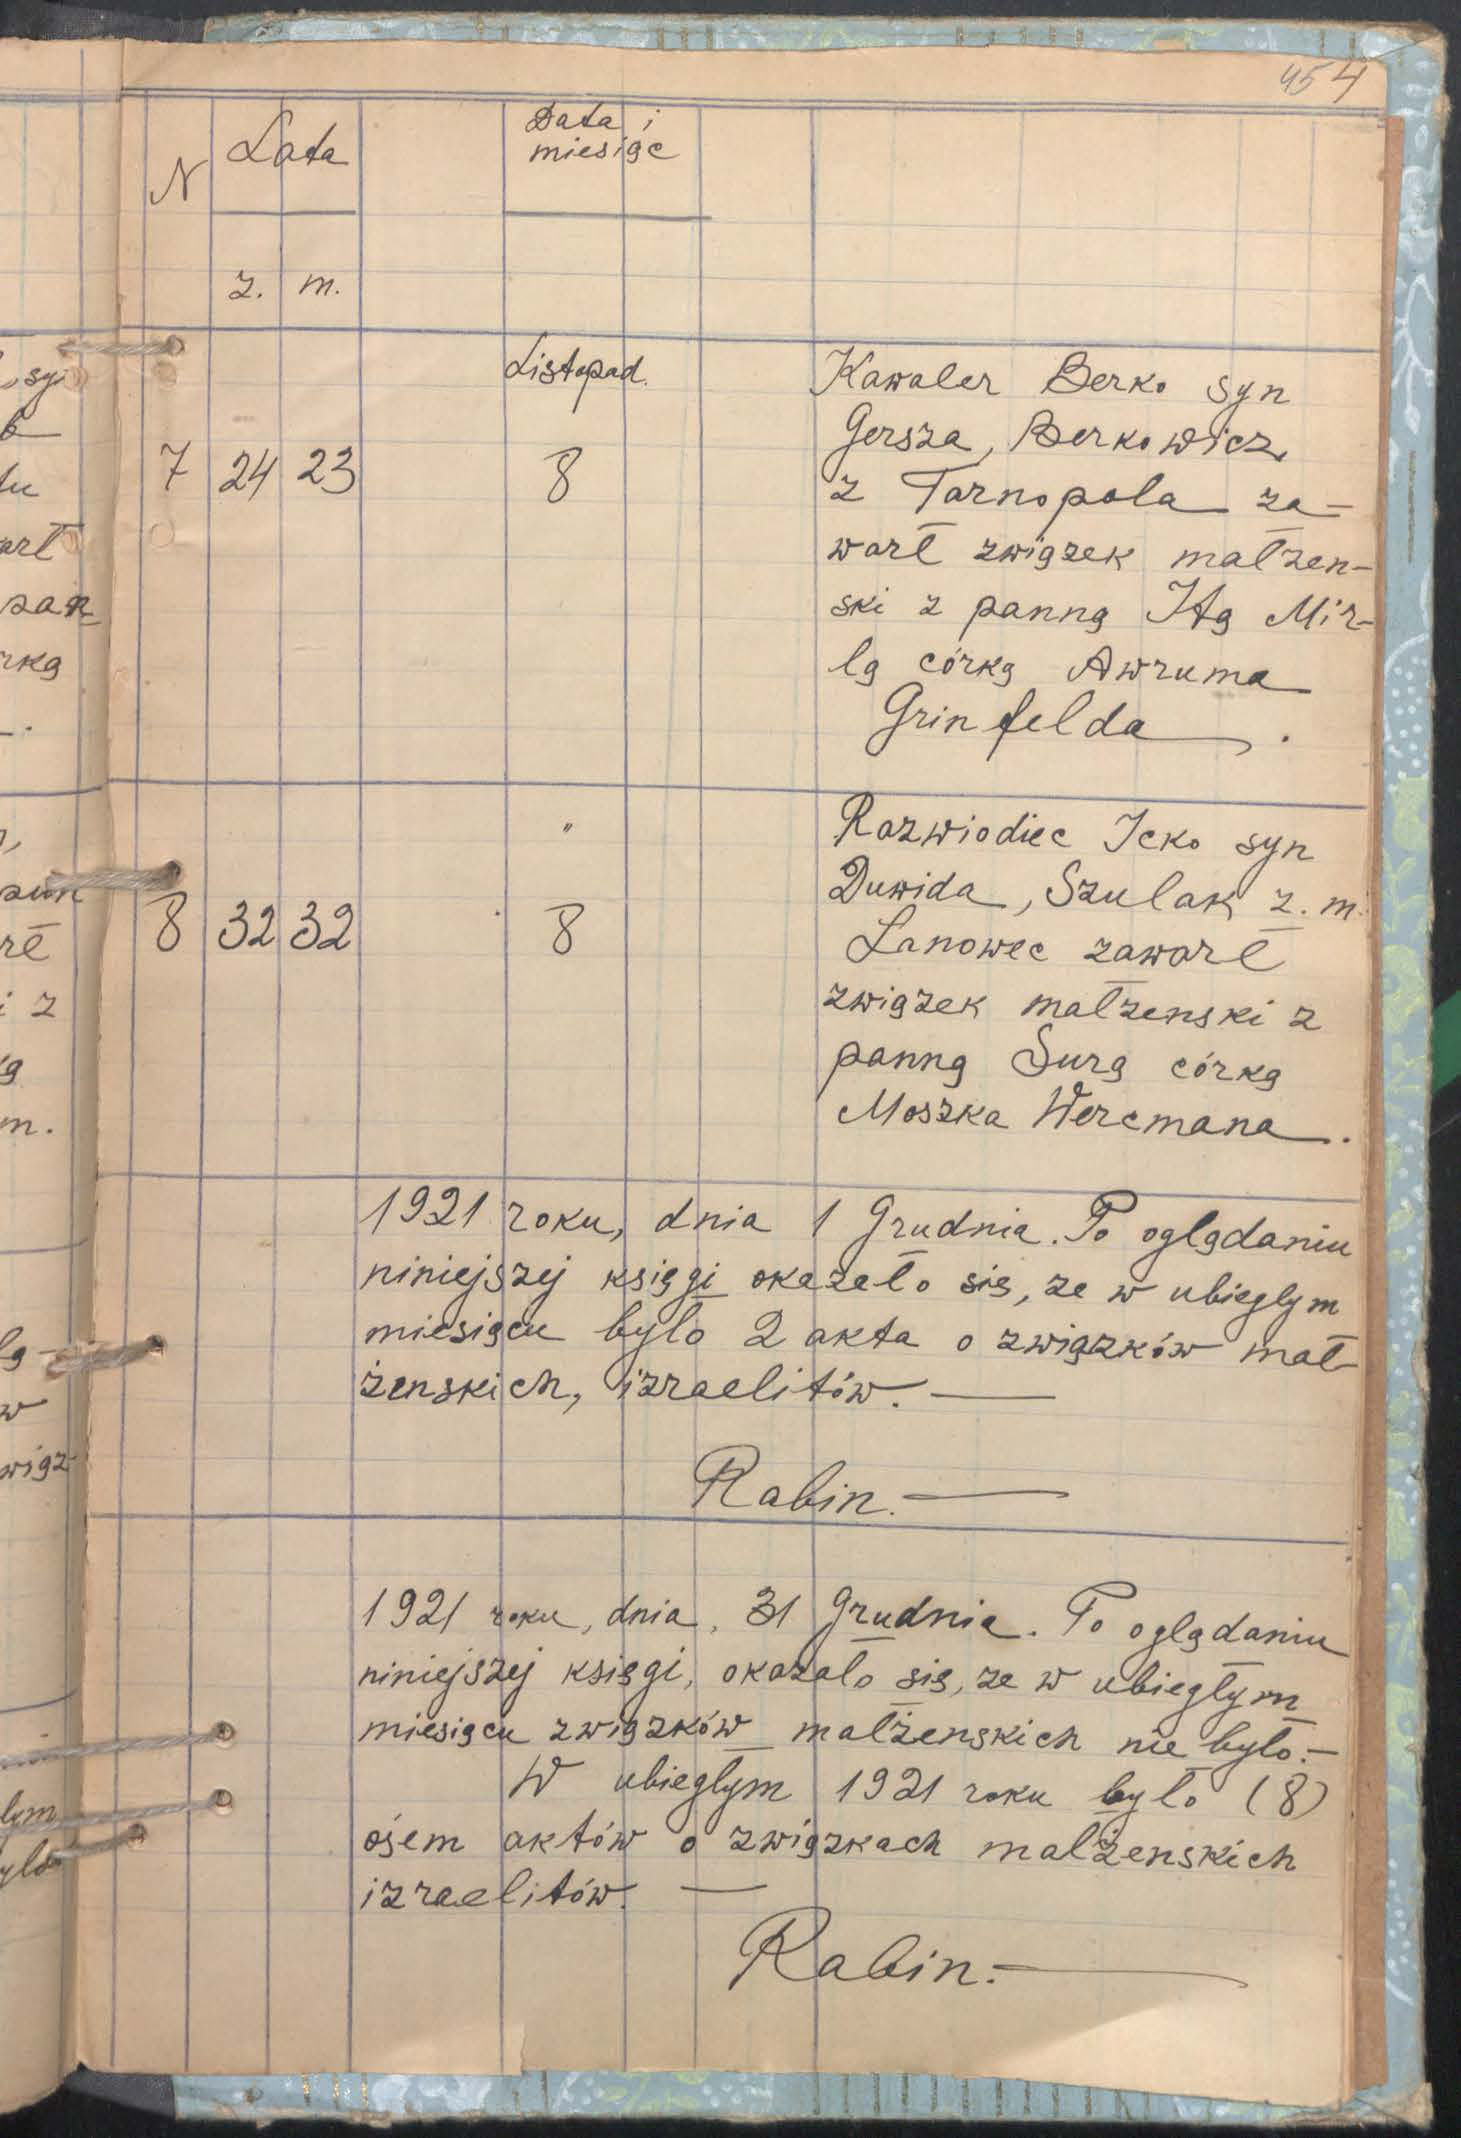 454
N
Lata
Data i
miesiąc
z.
m.
Listopad.
7
24
23
8
Kawaler Berko syn
Gersza, Berkowicz,
z Tarnopola za-
warł związek małzen-
ski z panną Itą Mir-
lą córką Awruma
Grinfelda.
"
8
32
32
8
Razwiodiec Icko syn
Duwida, Szulak z. m.
Lanowec zawarł
związek małzenski z
panną Surą córką
Moszka Wercmana.
1921 roku, dnia 1 Grudnia. Po oglądaniu
niniejszej księgi okazało się, ze w ubieglym
miesiącu bylo 2 akta o związków mał-
żenskich, izraelitów. —
Rabin. —
1921 roku, dnia, 31 Grudnia. Po oglądaniu
niniejszej księgi, okazało się, ze w ubiegłym
miesiącu związków małżenskich nie było. —
W ubieglym 1921 roku było (8)
ósem aktów o związkach małżenskich
izraelitów. —
Rabin. —